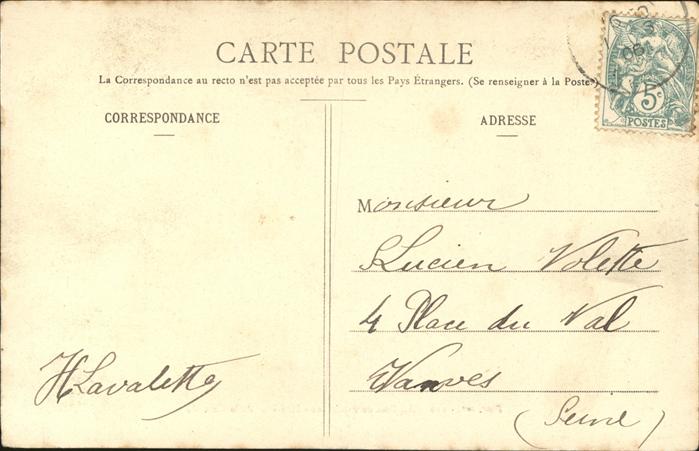 CARTE POSTALE
La Correspondance au recto n'est pas acceptée par tous les Pays Étrangers. (Se renseigner à la Poste)
CORRESPONDANCE
ADRESSE
5c
POSTES
06
Monsieur
Lucien Volette
4 Place du Val
Vanves
(Seine)
HLavalette